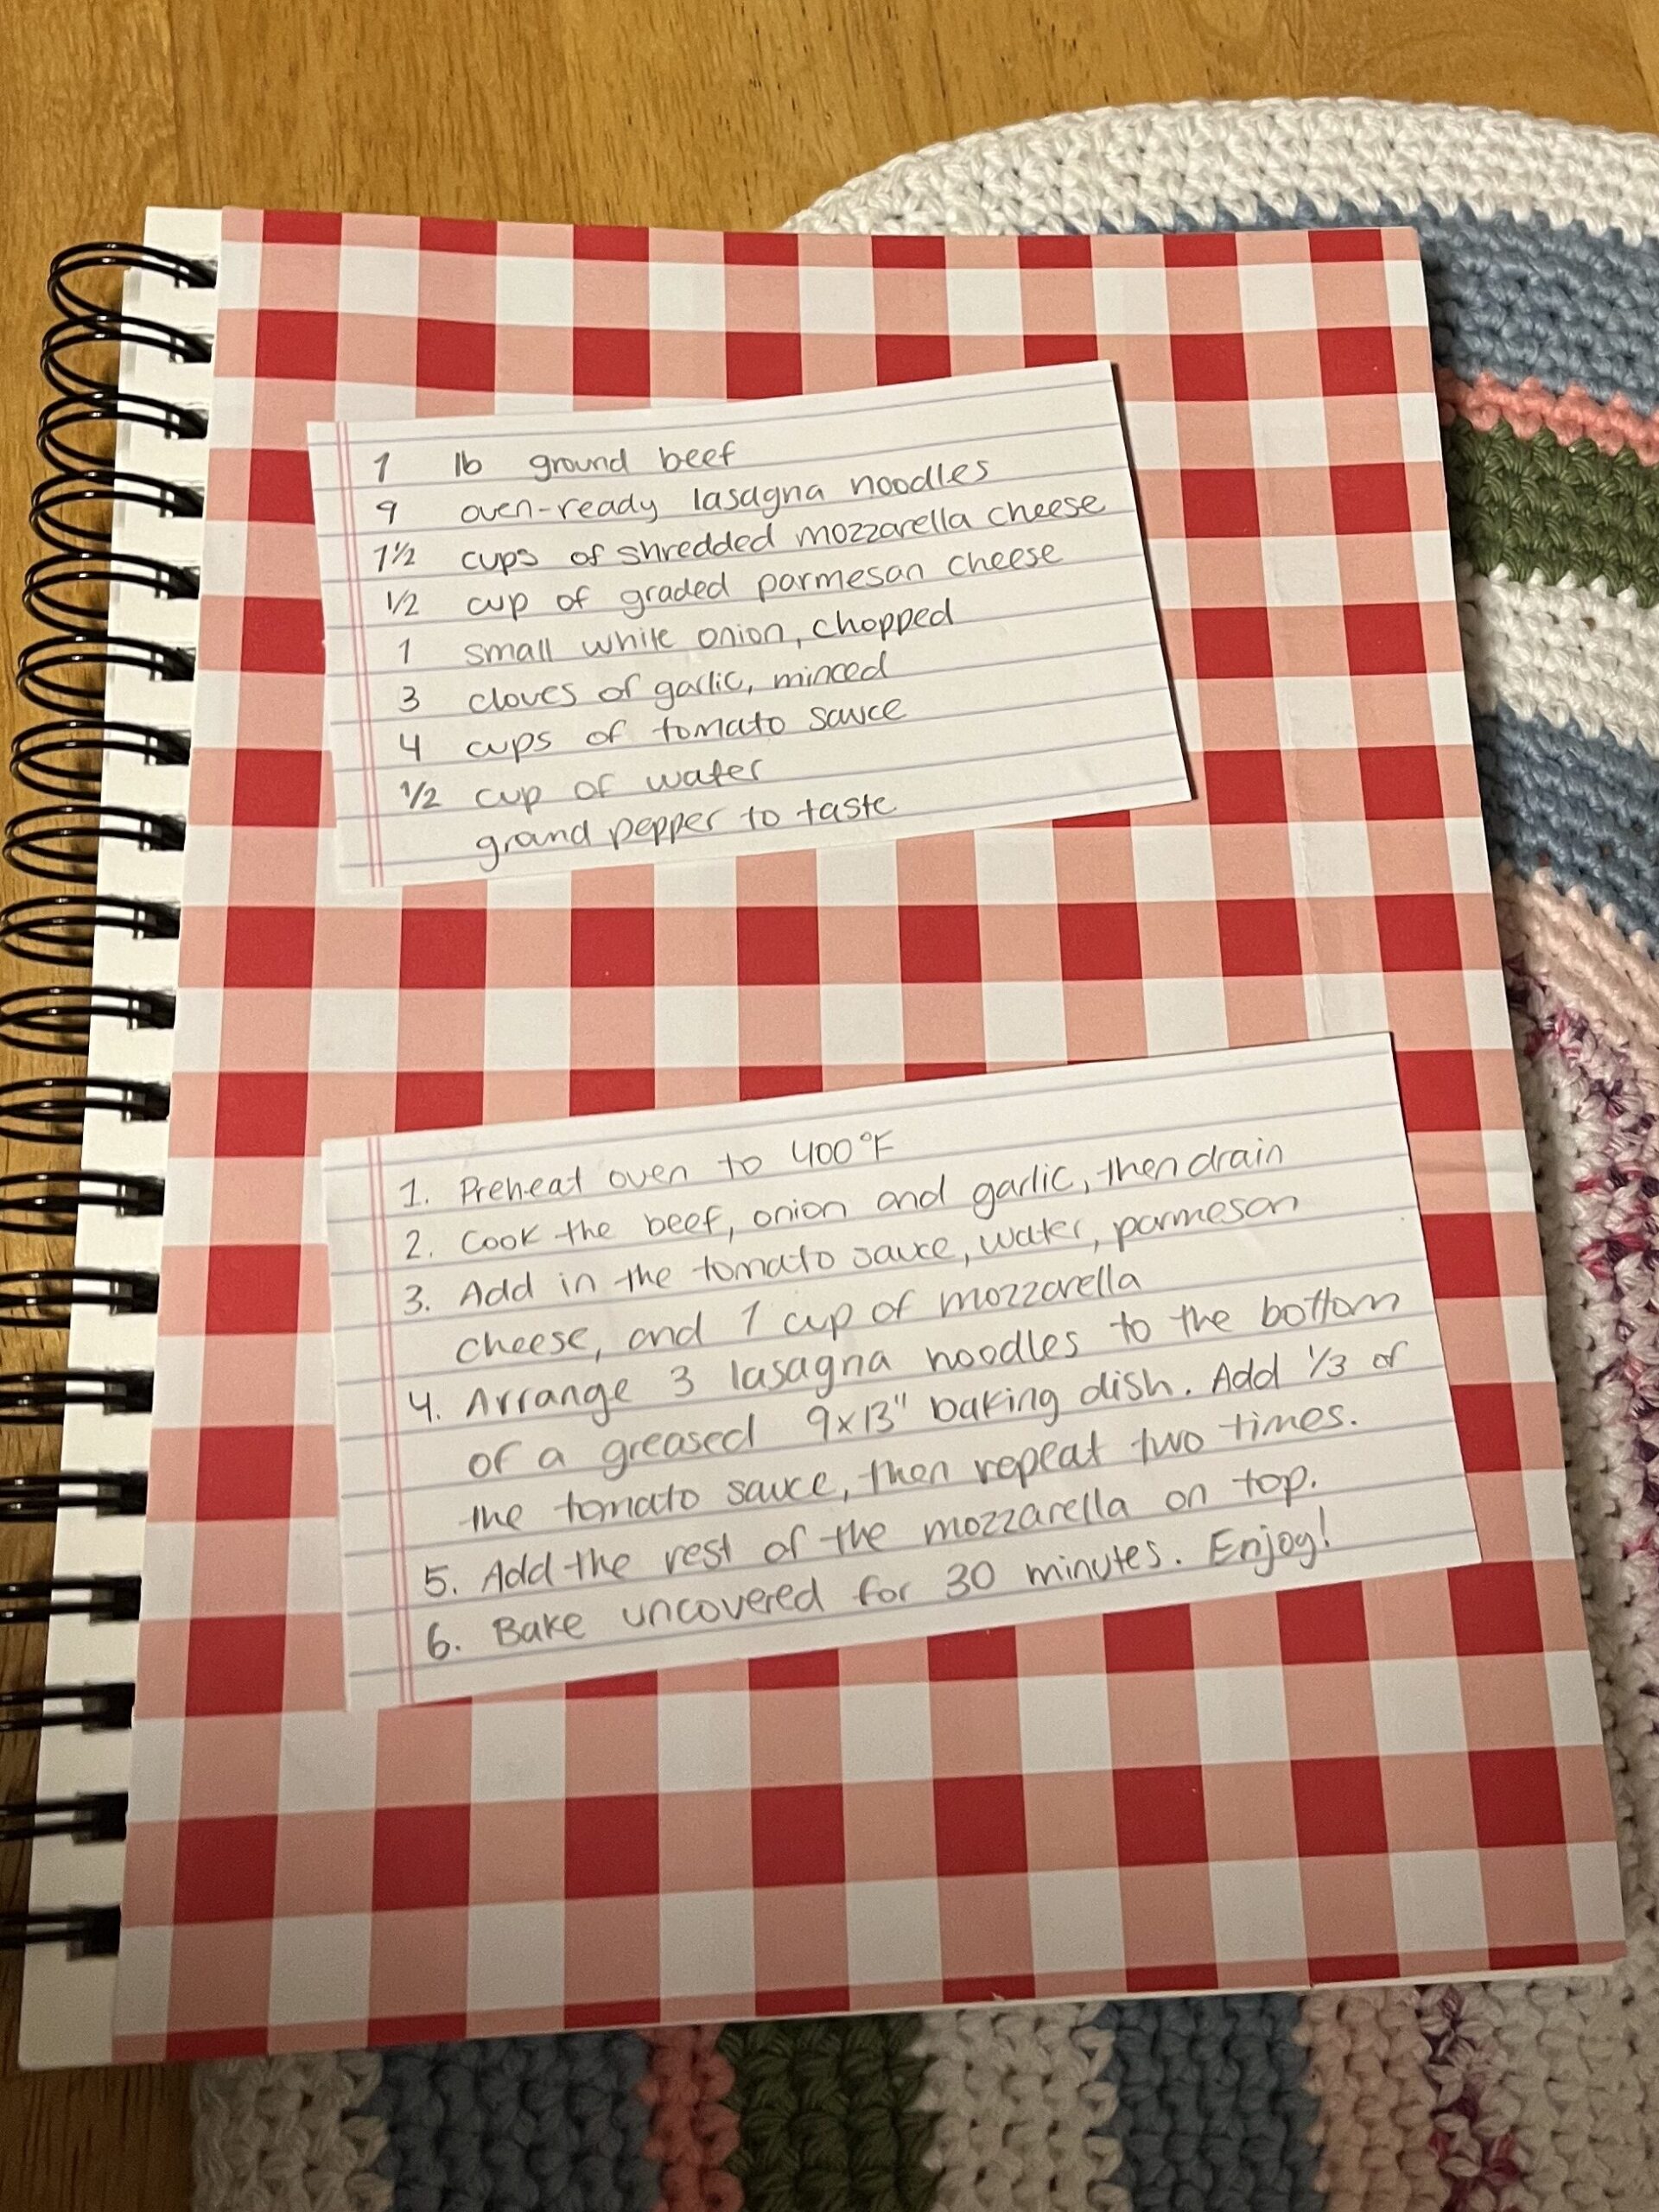 1 lb ground beef
9 oven-ready lasagna noodles
1 1/2 cups of shredded mozzarella cheese
1/2 cup of graded parmesan cheese
1 small white onion, chopped
3 cloves of garlic, minced
4 cups of tomato sauce
1/2 cup of water
grand pepper to taste
1. Preheat oven to 400°F
2. Cook the beef, onion and garlic, then drain
3. Add in the tomato sauce, water, parmesan
cheese, and 1 cup of mozzarella
4. Arrange 3 lasagna noodles to the bottom
of a greased 9x13" baking dish. Add 1/3 of
the tomato sauce, then repeat two times.
5. Add the rest of the mozzarella on top.
6. Bake uncovered for 30 minutes. Enjoy!